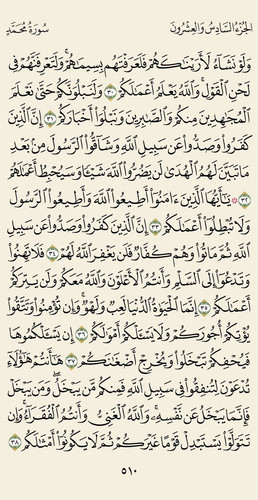 الجزء السادس والعشرون سورة محمد
وَلَوْ نَشَآءُ لَأَرَيْنَـٰكَهُمْ فَلَعَرَفْتَهُم بِسِيمَـٰهُمْ ۚ وَلَتَعْرِفَنَّهُمْ فِى
لَحْنِ ٱلْقَوْلِ ۚ وَٱللَّهُ يَعْلَمُ أَعْمَـٰلَكُمْ ٣٠ وَلَنَبْلُوَنَّكُمْ حَتَّىٰ نَعْلَمَ
ٱلْمُجَـٰهِدِينَ مِنكُمْ وَٱلصَّـٰبِرِينَ وَنَبْلُوَا۟ أَخْبَارَكُمْ ٣١ إِنَّ ٱلَّذِينَ
كَفَرُوا۟ وَصَدُّوا۟ عَن سَبِيلِ ٱللَّهِ وَشَآقُّوا۟ ٱلرَّسُولَ مِنۢ بَعْدِ
مَا تَبَيَّنَ لَهُمُ ٱلْهُدَىٰ لَن يَضُرُّوا۟ ٱللَّهَ شَيْـًٔا وَسَيُحْبِطُ أَعْمَـٰلَهُمْ
٣٢ ۞ يَـٰٓأَيُّهَا ٱلَّذِينَ ءَامَنُوٓا۟ أَطِيعُوا۟ ٱللَّهَ وَأَطِيعُوا۟ ٱلرَّسُولَ
وَلَا تُبْطِلُوٓا۟ أَعْمَـٰلَكُمْ ٣٣ إِنَّ ٱلَّذِينَ كَفَرُوا۟ وَصَدُّوا۟ عَن سَبِيلِ
ٱللَّهِ ثُمَّ مَاتُوا۟ وَهُمْ كُفَّارٌ فَلَن يَغْفِرَ ٱللَّهُ لَهُمْ ٣٤ فَلَا تَهِنُوا۟
وَتَدْعُوٓا۟ إِلَى ٱلسَّلْمِ وَأَنتُمُ ٱلْأَعْلَوْنَ وَٱللَّهُ مَعَكُمْ وَلَن يَتِرَكُمْ
أَعْمَـٰلَكُمْ ٣٥ إِنَّمَا ٱلْحَيَوٰةُ ٱلدُّنْيَا لَعِبٌ وَلَهْوٌ ۚ وَإِن تُؤْمِنُوا۟ وَتَتَّقُوا۟
يُؤْتِكُمْ أُجُورَكُمْ وَلَا يَسْـَٔلْكُمْ أَمْوَٰلَكُمْ ٣٦ إِن يَسْـَٔلْكُمُوهَا
فَيُحْفِكُمْ تَبْخَلُوا۟ وَيُخْرِجْ أَضْغَـٰنَكُمْ ٣٧ هَـٰٓأَنتُمْ هَـٰٓؤُلَآءِ
تُدْعَوْنَ لِتُنفِقُوا۟ فِى سَبِيلِ ٱللَّهِ فَمِنكُم مَّن يَبْخَلُ ۖ وَمَن يَبْخَلْ
فَإِنَّمَا يَبْخَلُ عَن نَّفْسِهِۦ ۚ وَٱللَّهُ ٱلْغَنِىُّ وَأَنتُمُ ٱلْفُقَرَآءُ ۚ وَإِن
تَتَوَلَّوْا۟ يَسْتَبْدِلْ قَوْمًا غَيْرَكُمْ ثُمَّ لَا يَكُونُوٓا۟ أَمْثَـٰلَكُم ٣٨
٥١٠